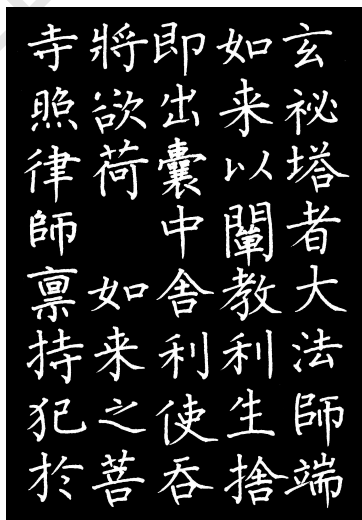 玄祕塔者大法師端
如来以闡教利生捨
即出囊中舎利使吞
將欲荷 如来之菩
寺照律師稟持犯於